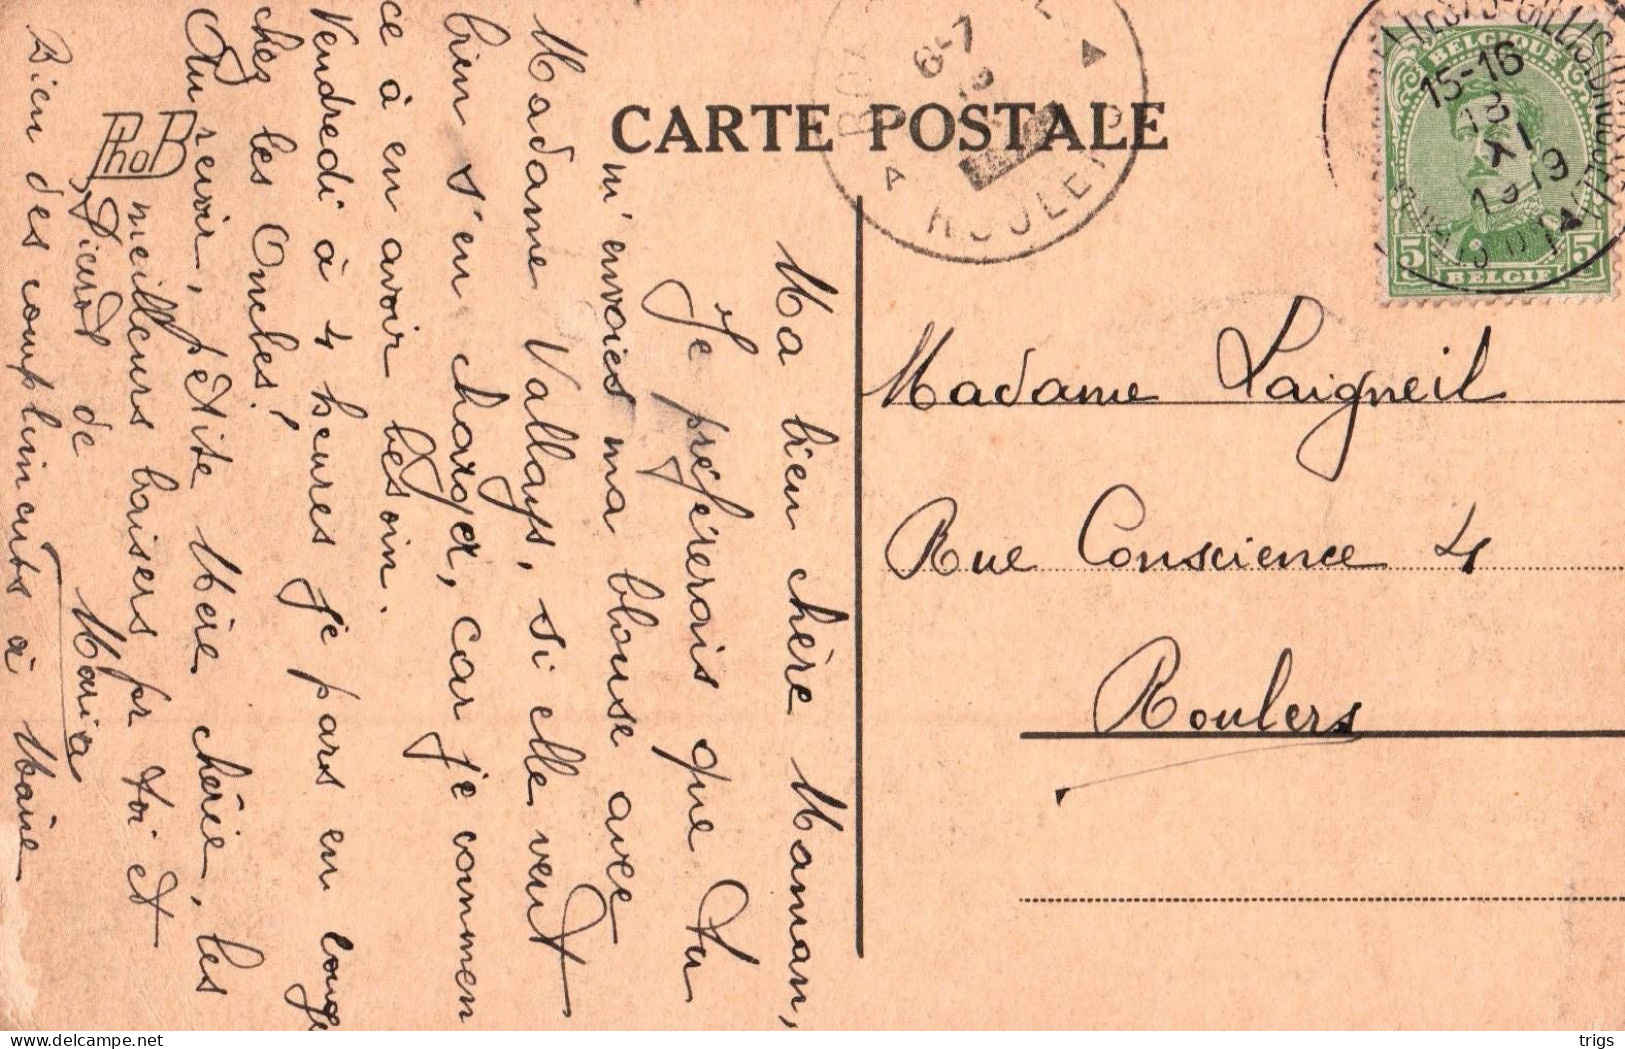 CARTE POSTALE
Ma bien chère Maman,
Je préférerais que tu
m'envoies ma blouse avec
Madame Vallays, si elle veut
bien s'en charger, car je commen
ce à en avoir besoin.
Vendredi à 4 heures je pars en congé
chez les Oncles!
Au revoir, petite Mère chérie, les
meilleurs baisers pr toi et
de
Maria
Bien des compliments à
PhoB
Madame Laigneil
Rue Conscience 4
Roulers
BELGIQUE
5 5
BELGIE
15-16
13
XI
1919
6-7
ROULERS
A
trigs
delcampe.net